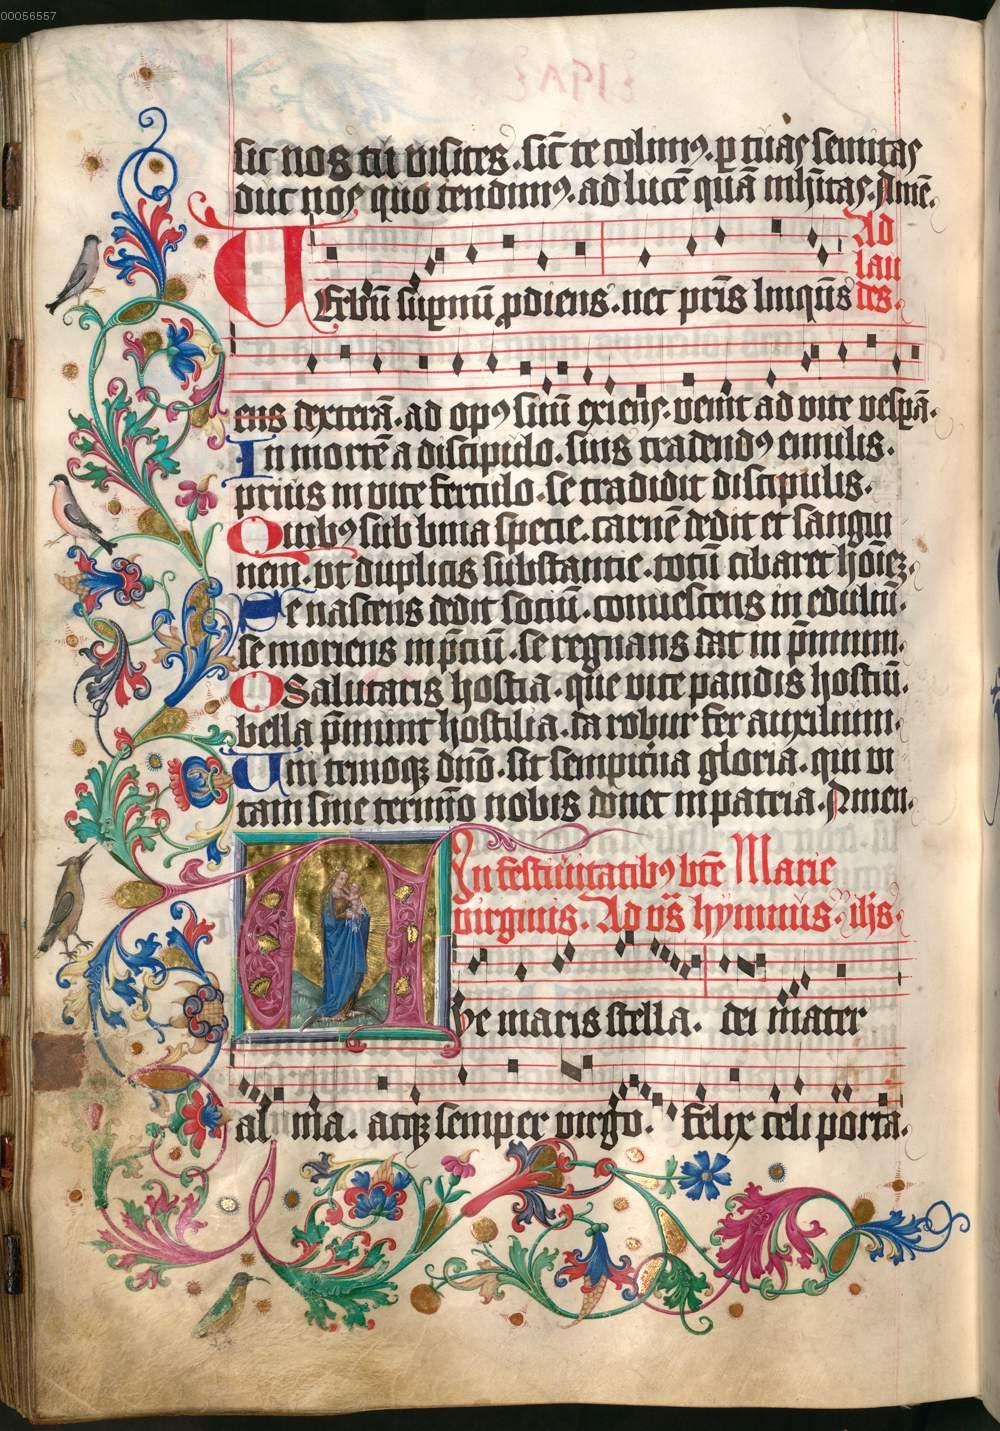 00056557
sic nos tu visites . sic̄ te colimꝯ . ꝑ tuas semitas
duc nos quo tendimꝯ . ad lucē quā inh̄itas . Amē .
Ad
lau
des .
UErbū suꝑnū ꝓdiens . nec pr̄is linqūs
ens dexterā . ad opꝯ suū exiens . venit ad vite vesꝑā .
In mortē a discipulo . suis tradendꝯ emulis .
prius in vite ferculo . se tradidit discipulis .
Quibꝯ sub bina specie . carnē dedit et sangui
nem . vt duplicis substantie . totū cibaret hoīeꝫ .
Se nascens dedit sociū . convescens in eduliū .
se moriens in p̄ciū . se regnans dat in p̄mium .
O Salutaris hostia . que vite pandis hostiū .
bella p̄munt hostilia . da robur fer auxilium .
Uni trinoqꝫ dn̄o . sit sempit̄na gloria . qui vi
tam sine termīo nobis donet in patria . Amen .
In festivitatibꝯ bt̄e Marie
virginis . Ad vs̄ hymnus .
Ave maris stella . dei mater
al ma . atqꝫ semper virgo . felix celi porta .